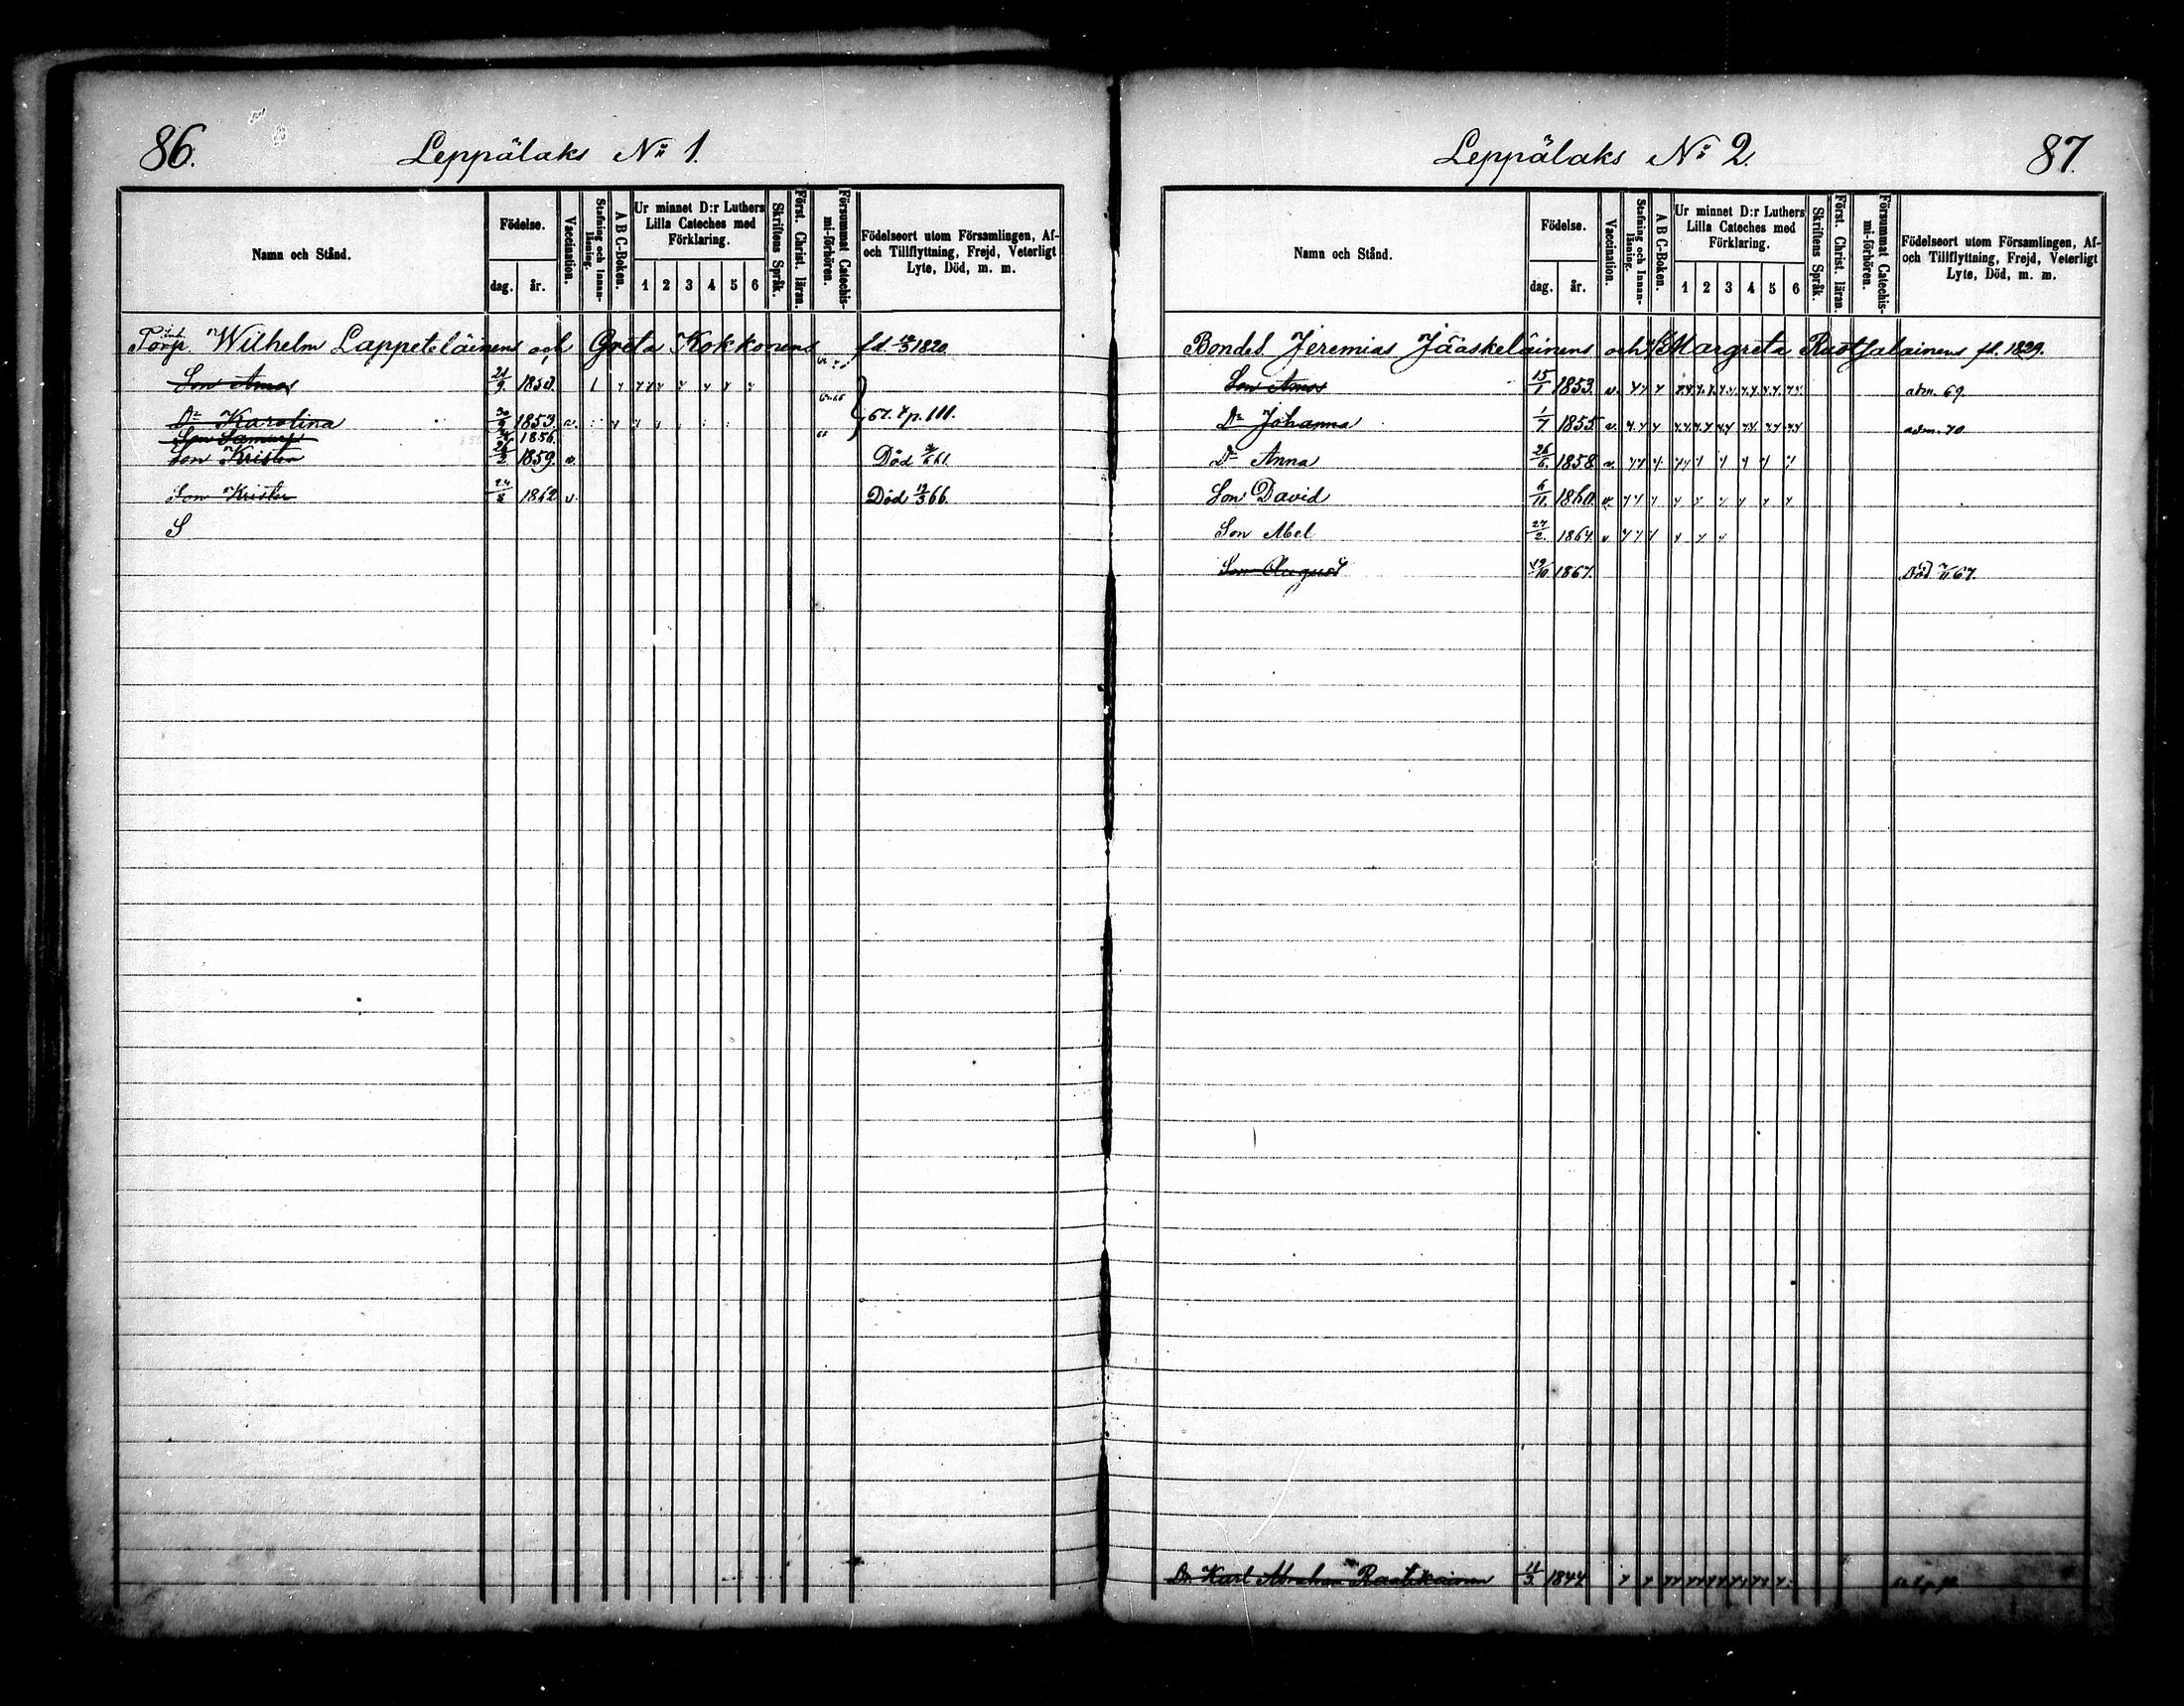 86. Leppälaks No 1.
Namn och Stånd.
Födelse.
dag. år.
Vaccination.
Stafning och Innan-läsning.
A B C-Boken.
Ur minnet D:r Luthers Lilla Cateches med Förklaring.
1 2 3 4 5 6
Skriftens Språk.
Först. Christ. läran.
Försummat Catechis-mi-förhören.
Födelseort utom Församlingen, Af- och Tillflyttning, Frejd, Veterligt Lyte, Död, m. m.
Torp. Wilhelm Lappeteläinens och Greta Kokkonens fd. 1820
Son Amos 21/9 1850.
Dr Karolina 30/9 1853. v. 67. tp. 111.
Son Samuel 1856.
Son Krister 1859. v. Död 61.
Son Krister 24/8 1862 v. Död 12/3 66.
S
Leppälaks No 2. 87.
Namn och Stånd.
Födelse.
dag. år.
Vaccination.
Stafning och Innan-läsning.
A B C-Boken.
Ur minnet D:r Luthers Lilla Cateches med Förklaring.
1 2 3 4 5 6
Skriftens Språk.
Först. Christ. läran.
Försummat Catechis-mi-förhören.
Födelseort utom Församlingen, Af- och Tillflyttning, Frejd, Veterligt Lyte, Död, m. m.
Bonded. Jeremias Jääskeläinens och Margreta Ruotsalainens fd. 1829.
Son Amos 15/1 1853. v. adm. 69.
Dr Johanna 1/7 1855. v. adm. 70
Dr Anna 26/6. 1858 v.
Son David 6/11. 1860. v.
Son Abel 27/2. 1864 v
Son August 19/10 1867. Död 67.
Dr. Karl Abraham Raatikainen 11/3 1844